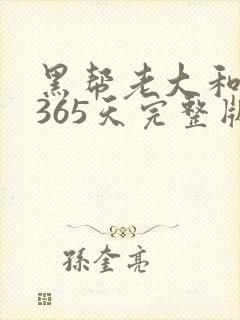 黑帮老大和
365天完整版
孫奎亮